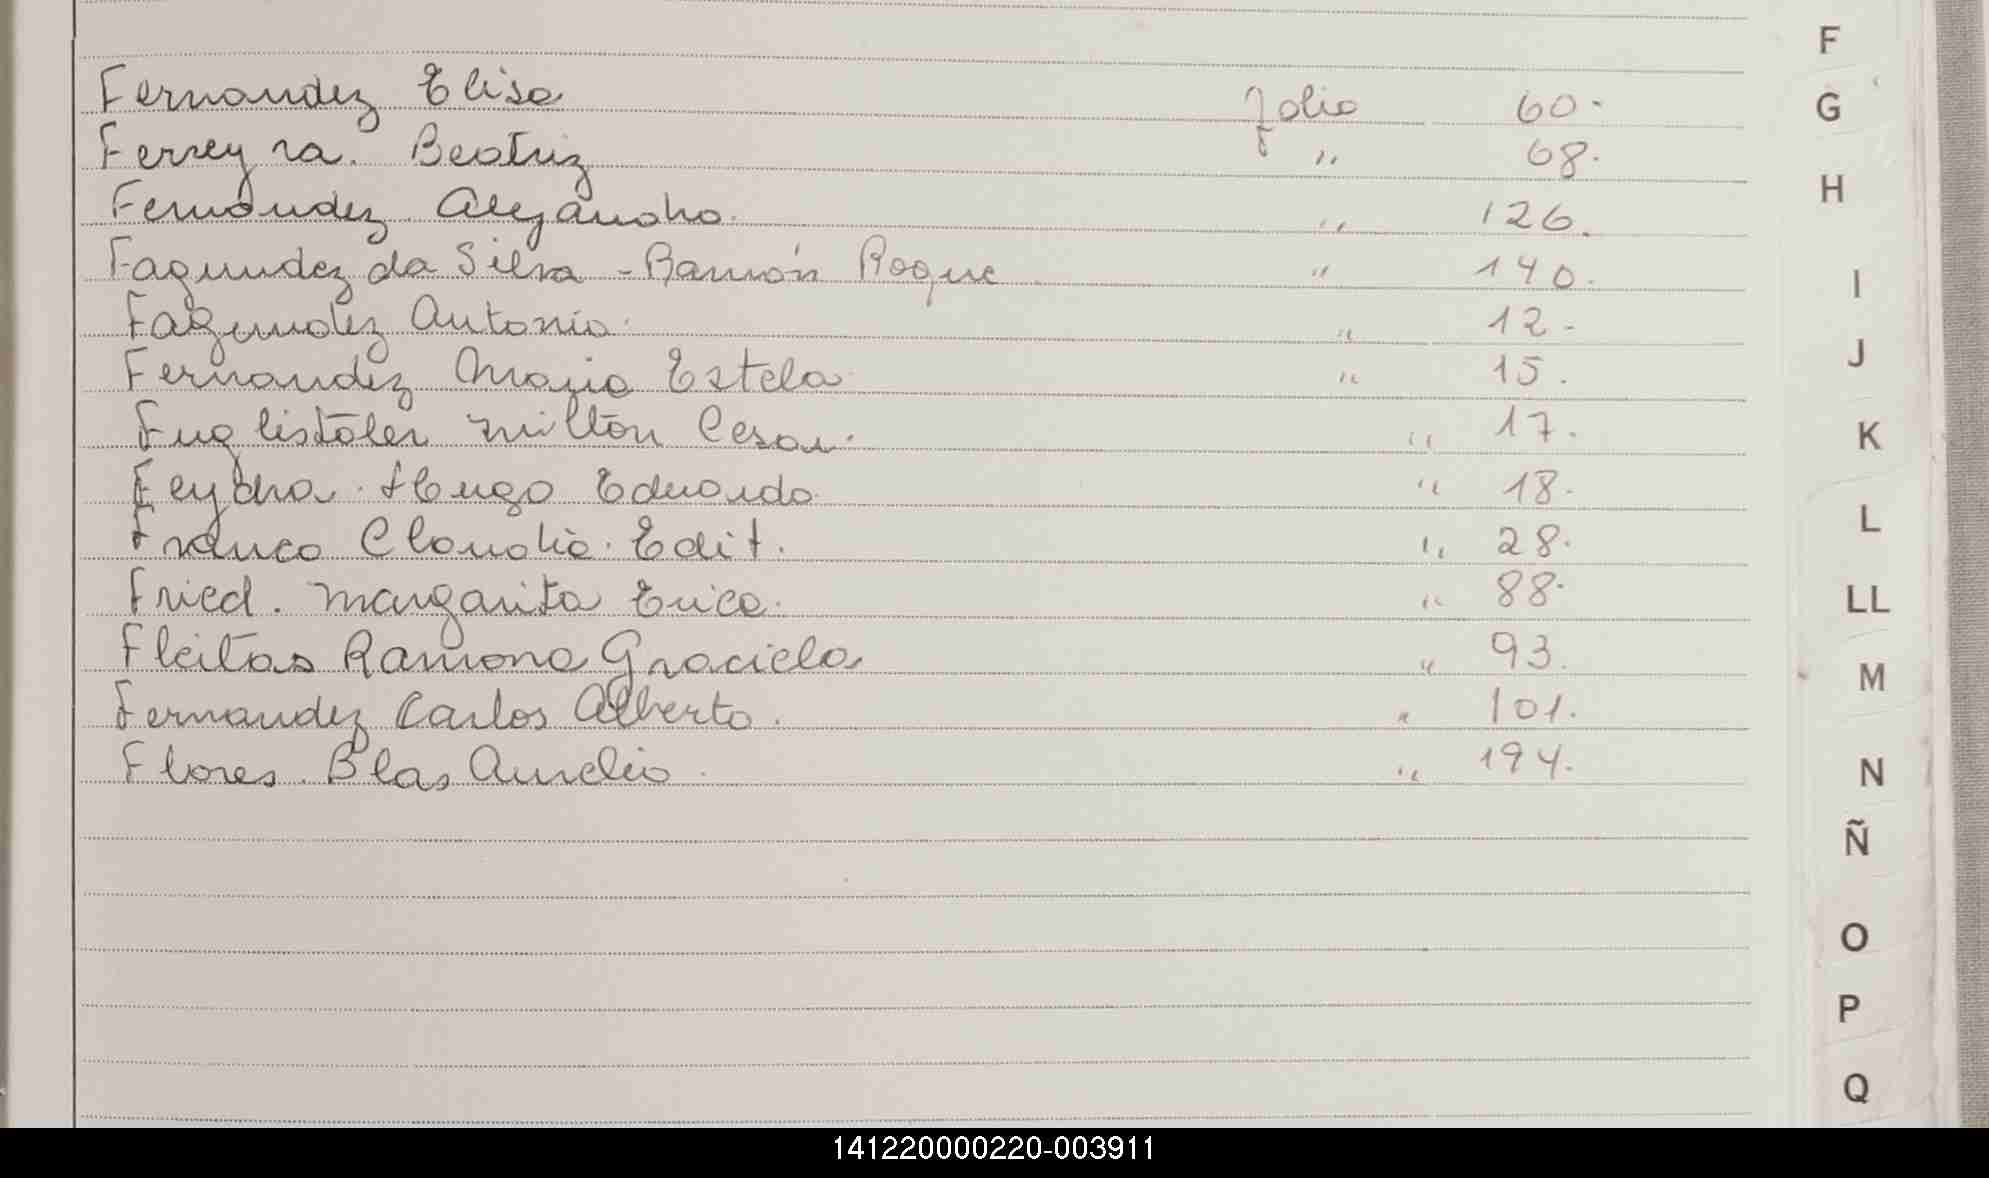 Fernandez Elisa folio 60.
Ferreyra. Beatriz " 68.
Fernandez Alejandro. " 126.
Fagundez da Silva - Ramón Roque " 140.
Fagundez Antonio. " 12.
Fernandez Maria Estela " 15.
Fuglistaler Milton Cesar. " 17.
Hugo Eduardo " 18.
Franco Claudia. Edit. " 28.
Fried. Margarita Erica. " 88.
Fleitas Ramona Graciela " 93.
Fernandez Carlos Alberto. " 101.
Flores. Blas Aurelio. " 194.
F
G
H
I
J
K
L
LL
M
N
Ñ
O
P
Q
141220000220-003911